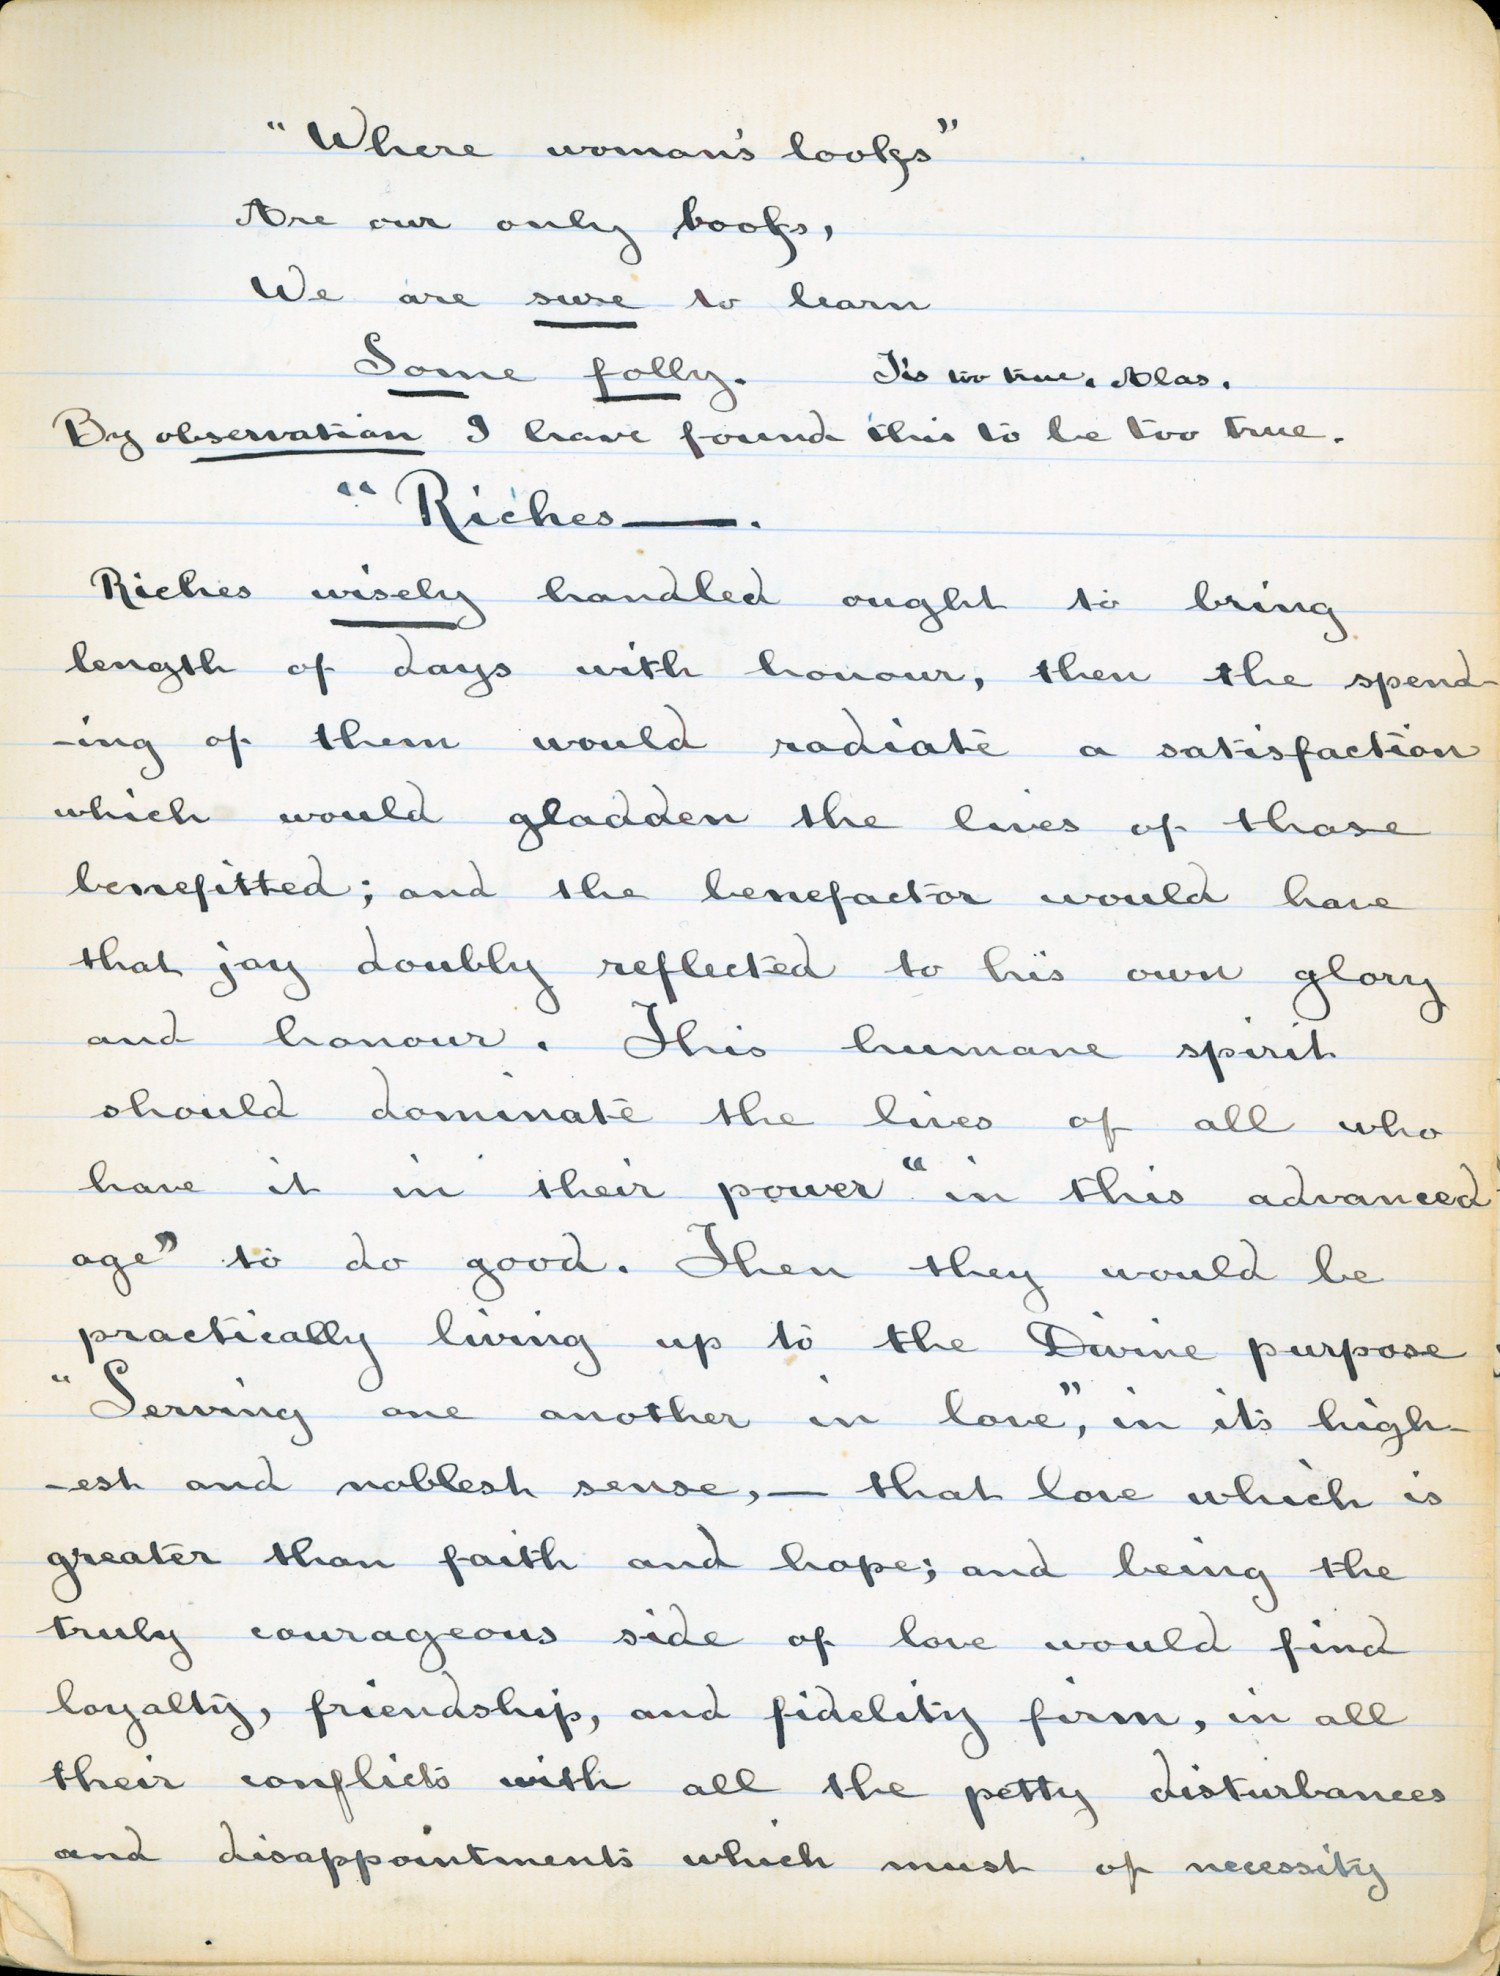 "Where woman's looks"
Are our only books,
We are sure to learn
Some folly. T'is too true. Alas.
By observation I have found this to be too true.
"Riches—.
Riches wisely handled ought to bring
length of days with honour, then the spend-
-ing of them would radiate a satisfaction
which would gladden the lives of those
benefitted; and the benefactor would have
that joy doubly reflected to his own glory
and honour. This humane spirit
should dominate the lives of all who
have it in their power "in this advanced
age" to do good. Then they would be
practically living up to the Divine purpose
"Serving one another in love", in its high-
-est and noblest sense,— that love which is
greater than faith and hope; and being the
truly courageous side of love would find
loyalty, friendship, and fidelity firm, in all
their conflicts with all the petty disturbances
and disappointments which must of necessity